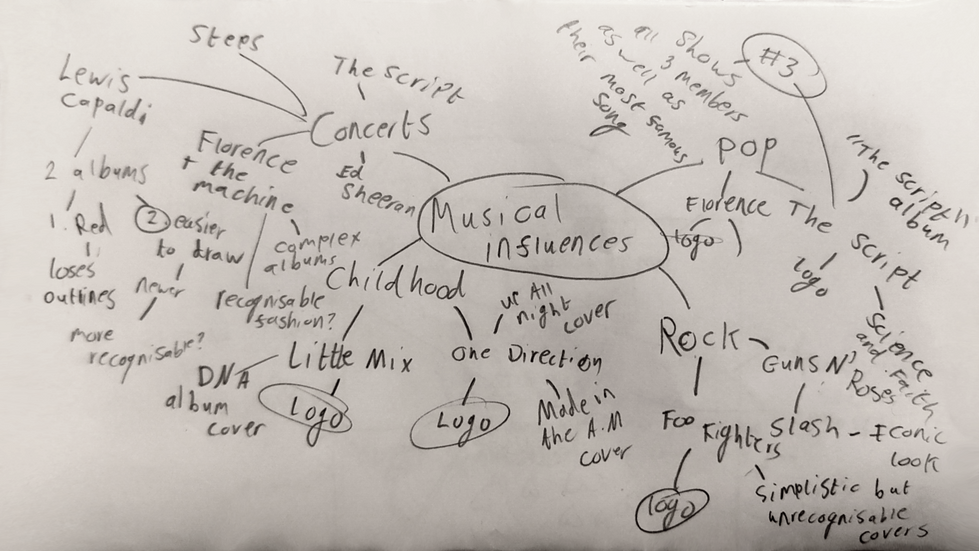 Steps
Lewis
Capaldi
2 albums
1. Red
loses
outlines
2 easier
to draw
newer
more
recognisable?
The Script
Concerts
Florence
+ the
machine
complex
albums
recognisable
fashion?
Ed
Sheeran
Musical
influences
Childhood
Little Mix
DNA
album
cover
Logo
One Direction
up All
night
cover
Logo
Made in
the A.M
cover
POP
Florence
logo
The
Script
logo
#3
Shows
all 3 members
as well as
their most famous
song
"The script"
album
Science
and Faith
Rock
Guns N'
Roses
Slash - Iconic
look
Foo
Fighters
logo
simplistic but
unrecognisable
covers